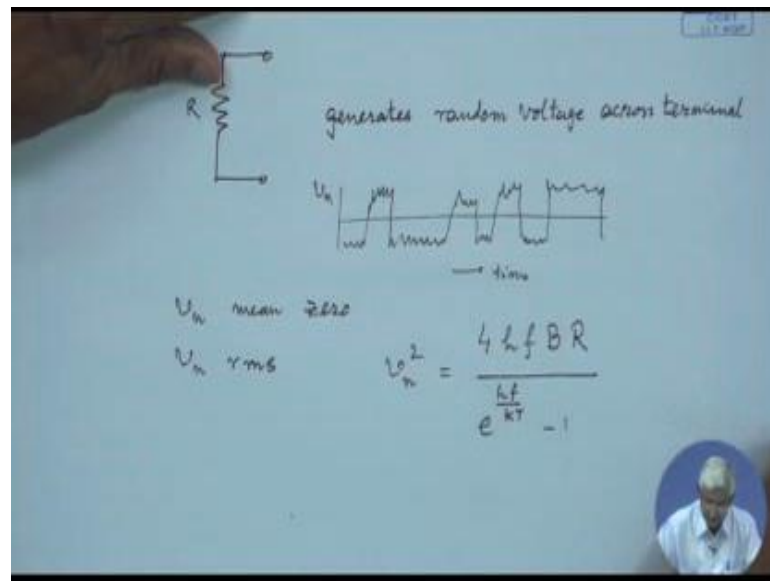 R
generates random voltage across terminal
Vn
→ time
Vn mean zero
Vn rms
vn² = 4 h f B R / (e^(hf/kT) - 1)